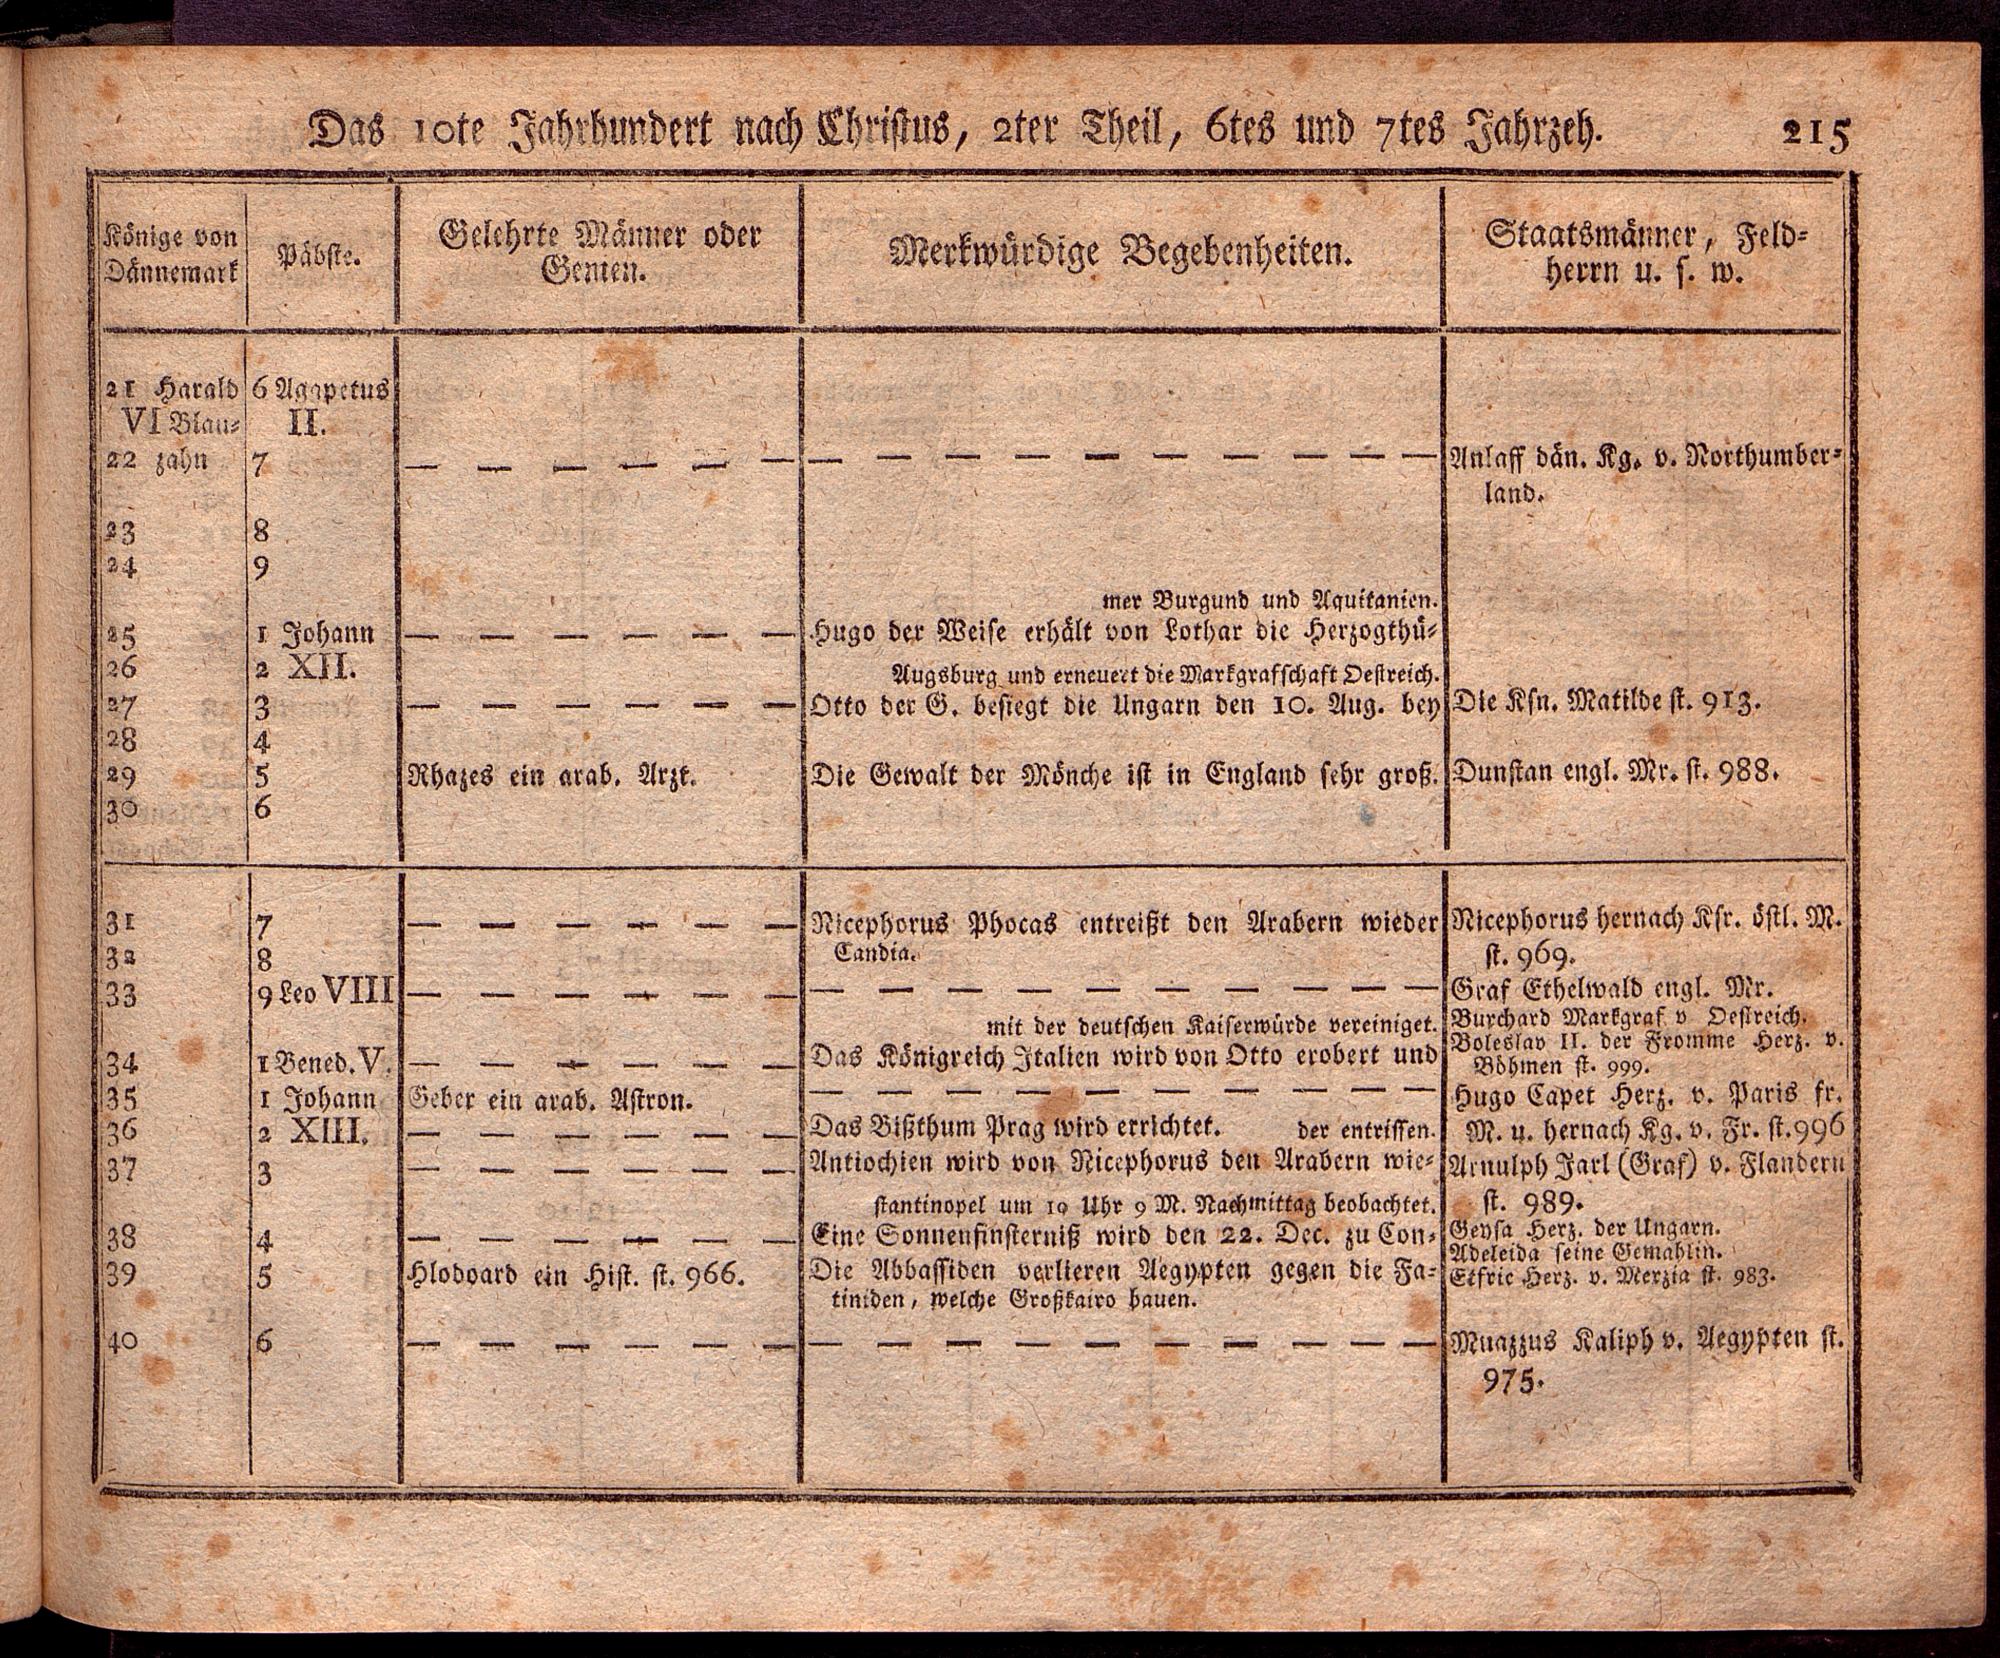 Das 10te Jahrhundert nach Christus, 2ter Theil, 6tes und 7tes Jahrzeh. 215
Könige von
Dännemark
Päbste.
Gelehrte Männer oder
Genien.
Merkwürdige Begebenheiten.
Staatsmänner, Feld-
herrn u. s. w.
21 Harald 6 Agapetus
VI Blau- II.
22 zahn 7 — — — — — — — — — — — — — — Anlaff dän. Kg. v. Northumber-
land.
23 8
24 9
mer Burgund und Aquitanien.
25 1 Johann — — — — — — Hugo der Weise erhält von Lothar die Herzogthü-
26 2 XII. Augsburg und erneuert die Markgrafschaft Oestreich.
27 3 — — — — — — Otto der G. besiegt die Ungarn den 10. Aug. bey Die Ksn. Matilde st. 913.
28 4
29 5 Rhazes ein arab. Arzt. Die Gewalt der Mönche ist in England sehr groß. Dunstan engl. Mr. st. 988.
30 6
31 7 — — — — — — Nicephorus Phocas entreißt den Arabern wieder Nicephorus hernach Ksr. östl. M.
32 8 Candia. st. 969.
33 9 Leo VIII — — — — — — — — — — — — — — Graf Ethelwald engl. Mr.
mit der deutschen Kaiserwürde vereiniget. Burchard Markgraf v Oestreich.
Boleslav II. der Fromme Herz. v.
34 1 Bened. V. — — — — — — Das Königreich Italien wird von Otto erobert und Böhmen st. 999.
35 1 Johann Geber ein arab. Astron. — — — — — — — — Hugo Capet Herz. v. Paris fr.
36 2 XIII. — — — — — — Das Bißthum Prag wird errichtet. der entrissen. M. u. hernach Kg. v. Fr. st. 996
37 3 — — — — — — Antiochien wird von Nicephorus den Arabern wie- Arnulph Jarl (Graf) v. Flandern
stantinopel um 10 Uhr 9 M. Nachmittag beobachtet. st. 989.
38 4 — — — — — — Eine Sonnenfinsterniß wird den 22. Dec. zu Con- Geysa Herz. der Ungarn.
Adeleida seine Gemahlin.
39 5 Hlodoard ein Hist. st. 966. Die Abbassiden verlieren Aegypten gegen die Fa- Etfric Herz. v. Merzia st. 983.
timiden, welche Großkairo bauen.
40 6 — — — — — — — — — — — — — — Muazzus Kaliph v. Aegypten st.
975.